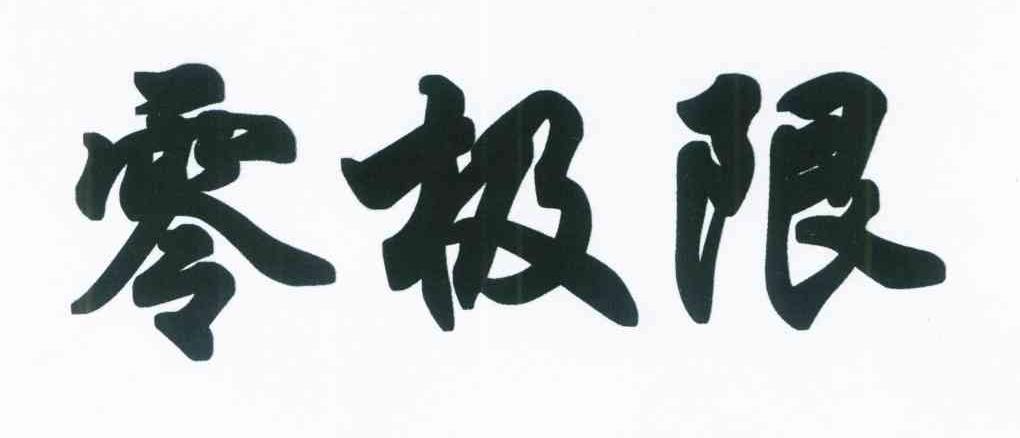 零极限